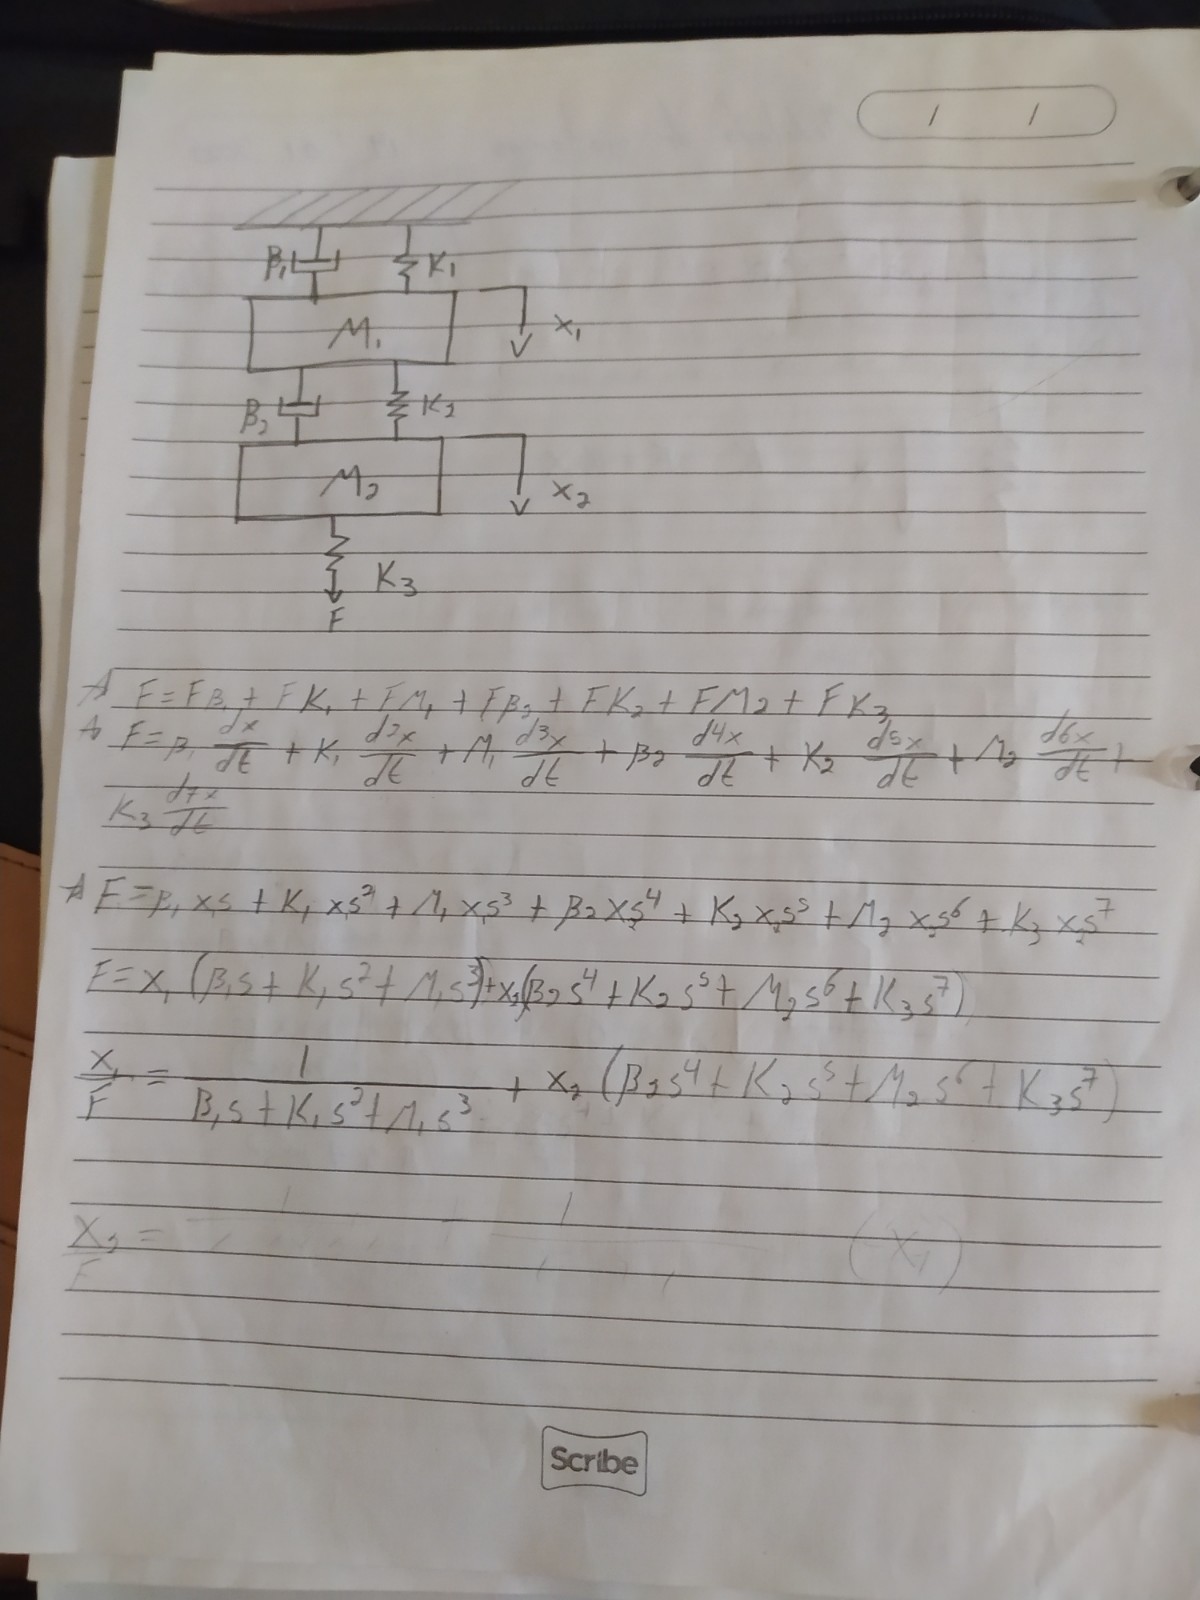 / /
β₁ K₁
M₁ x₁
β₂ K₂
M₂ x₂
K₃
F
F = Fβ₁ + FK₁ + FM₁ + Fβ₂ + FK₂ + FM₂ + FK₃
F = β₁ dx/dt + K₁ d2x/dt + M₁ d3x/dt + β₂ d4x/dt + K₂ d5x/dt + M₂ d6x/dt +
K₃ d7x/dt
F = β₁ x₁s + K₁ x₁s² + M₁ x₁s³ + β₂ x₂s⁴ + K₂ x₂s⁵ + M₂ x₂s⁶ + K₃ x₂s⁷
F = x₁ (β₁s + K₁s² + M₁s³) + x₂(β₂s⁴ + K₂s⁵ + M₂s⁶ + K₃s⁷)
x₁/F = 1/(β₁s + K₁s² + M₁s³) + x₂ (β₂s⁴ + K₂s⁵ + M₂s⁶ + K₃s⁷)
x₂/F =
Scribe